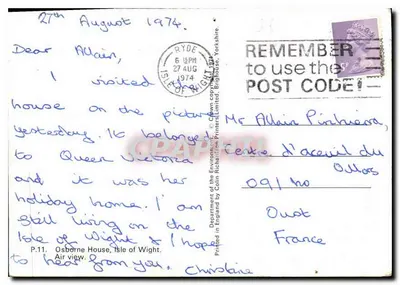 27th August 1974.
Dear Allain,
I visited the
house on the picture
yesterday. It belonged
to Queen Victoria
and it was her
holiday home. I am
still living on the
Isle of Wight & I hope
to hear from you.
Christine
P.11. Osborne House, Isle of Wight.
Air view.
Department of the Environment. Crown copyright
Printed in England by Colin Richardson Printers Limited, Brighouse, Yorkshire.
RYDE
6 PM
27 AUG
1974
ISLE OF WIGHT
REMEMBER
to use the
POST CODE!
Mr Allain
Centre d'aceuil du
09140
Oust
France